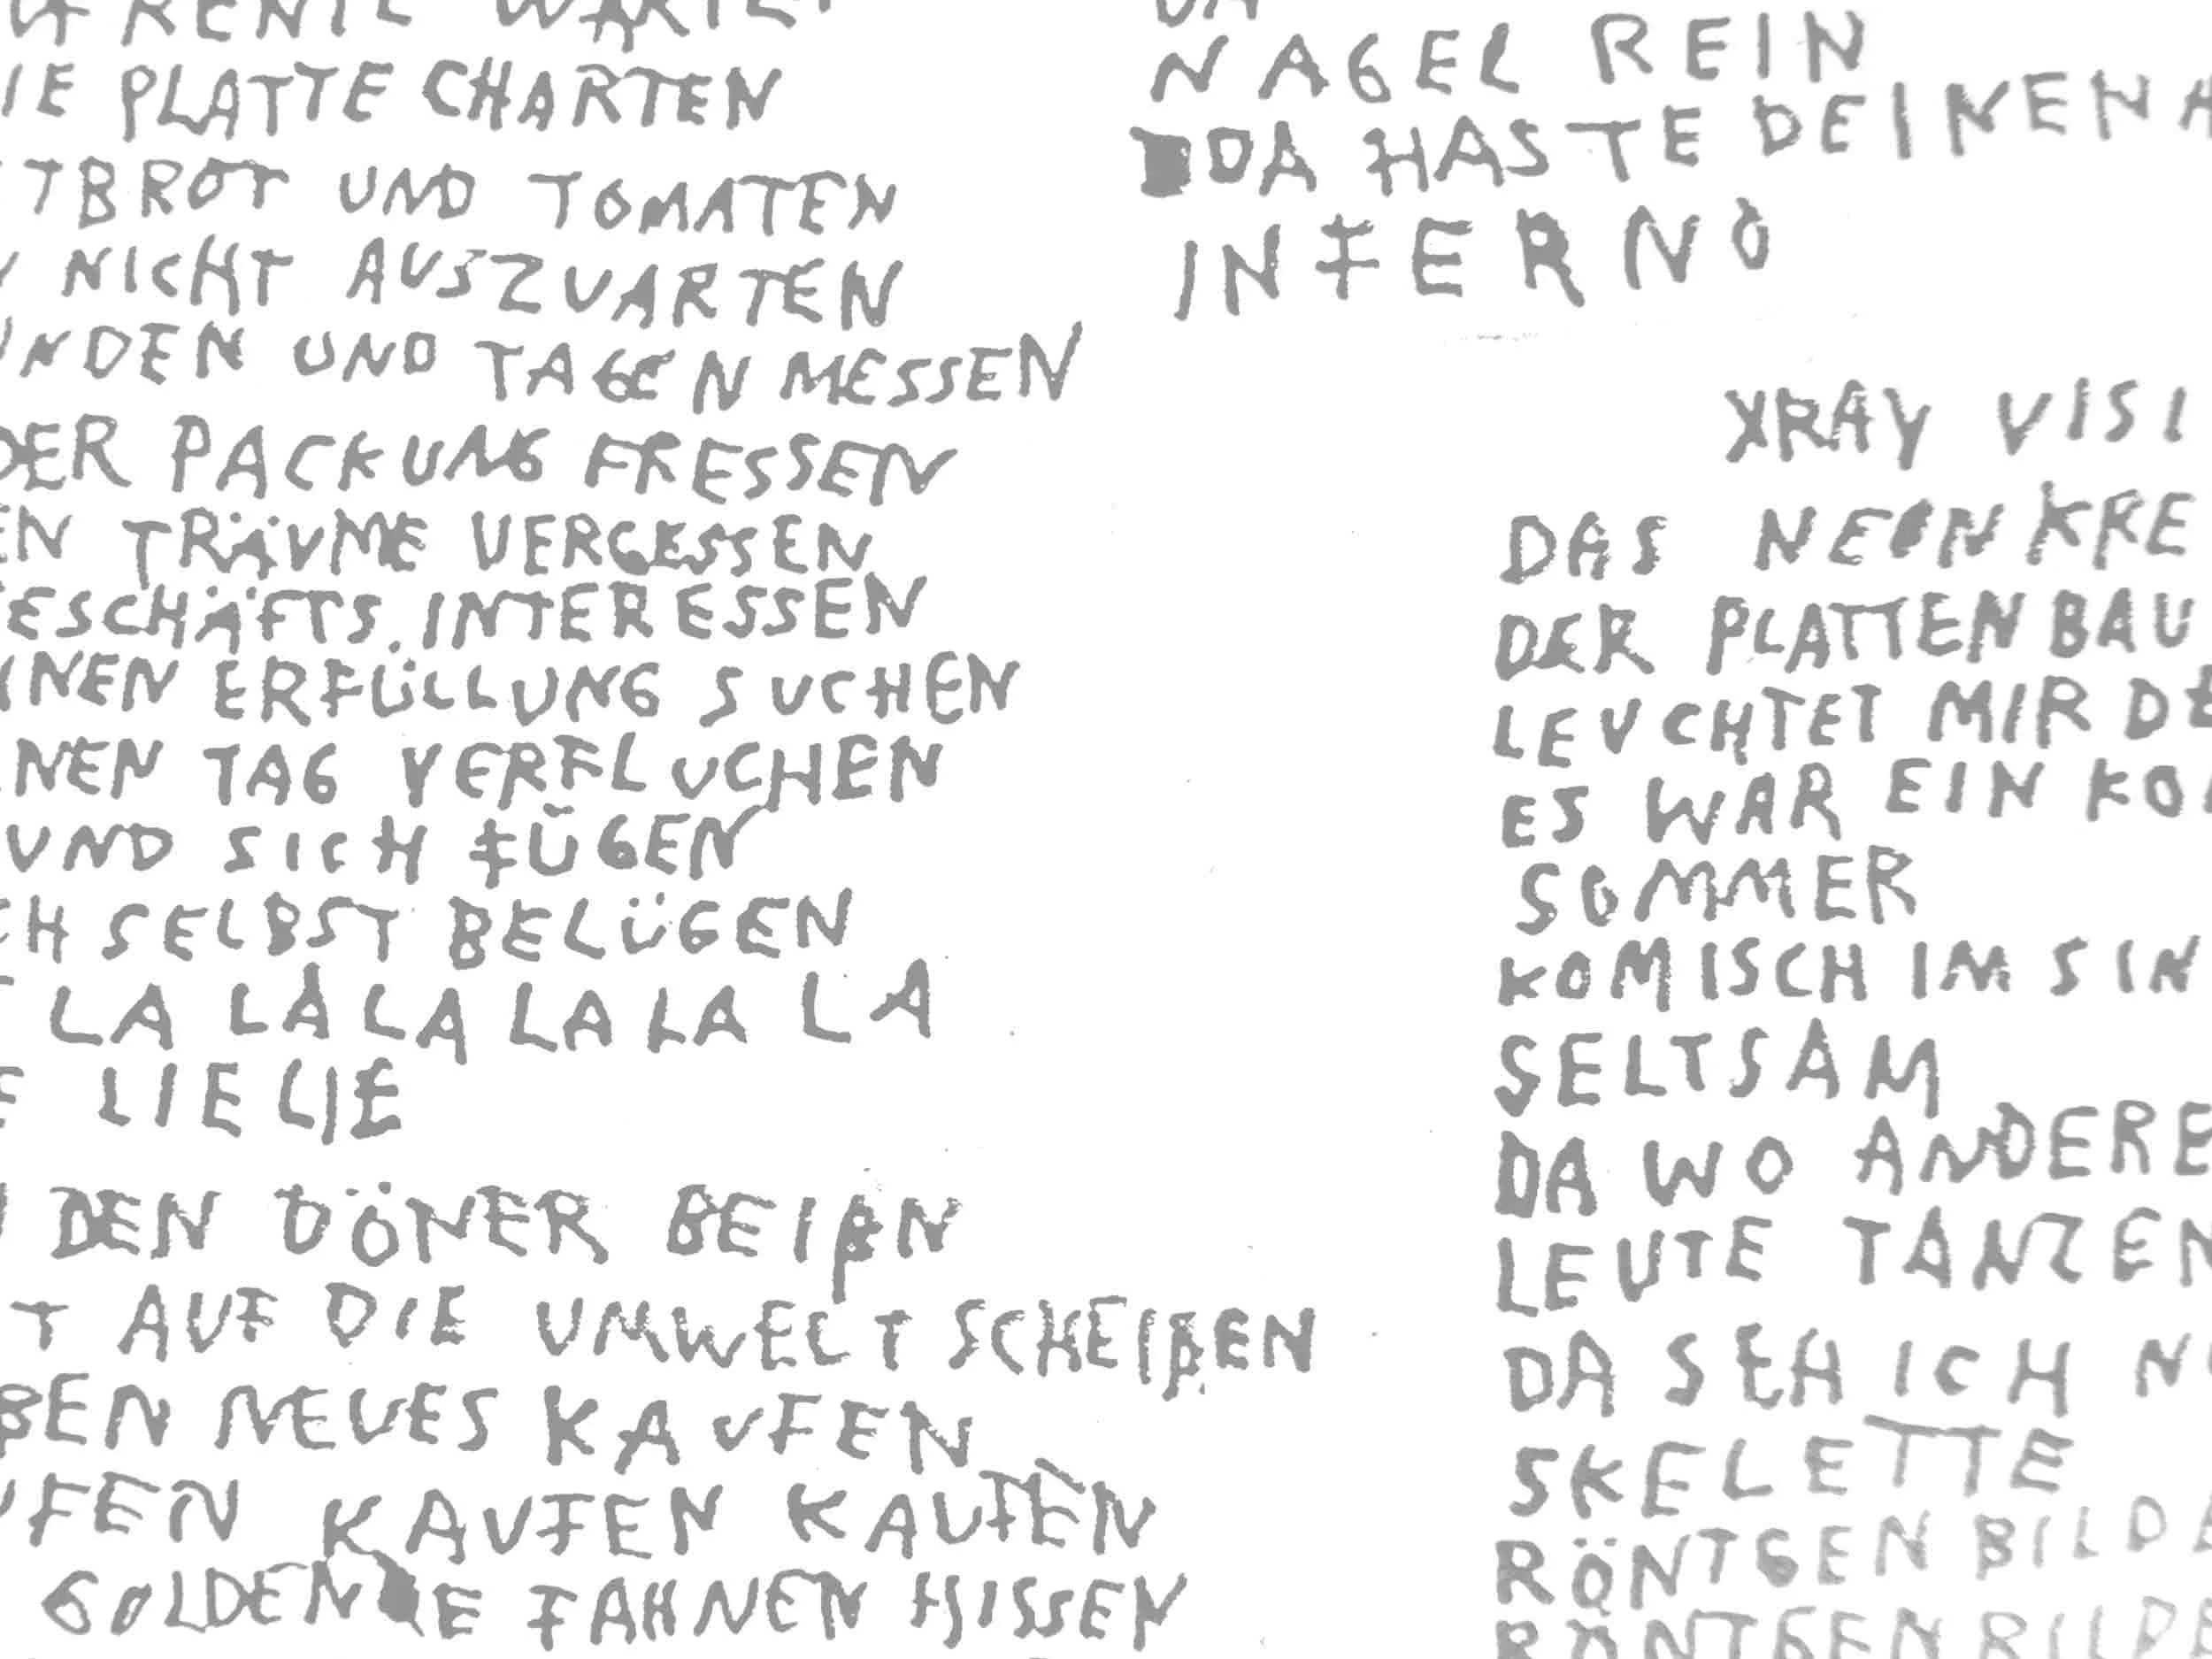 RENTE WARTE
PLATTE CHARTEN
UND TOMATEN
NICHT AUSZUARTEN
UND TAGEN MESSEN
DER PACKUNG FRESSEN
TRÄUME VERGESSEN
GESCHÄFTS.INTERESSEN
ERFÜLLUNG SUCHEN
TAG VERFLUCHEN
UND SICH FÜGEN
SELBST BELÜGEN
LA LA LA LA LA LA
LIE LIE
DEN DÖNER BEIßN
AUF DIE UMWELT SCHEIßEN
NEUES KAUFEN
KAUFEN KAUFEN
GOLDENE FAHNEN HISSEN
NAGEL REIN
DA HASTE DEINEN
INFERNO
XRAY
DAS
DER PLATTENBAU
LEUCHTET MIR
ES WAR EIN
SOMMER
KOMISCH IM
SELTSAM
DA WO ANDERE
LEUTE TANZEN
DA SEH ICH
SKELETTE
RÖNTGENBILD
RÖNTGENBILD